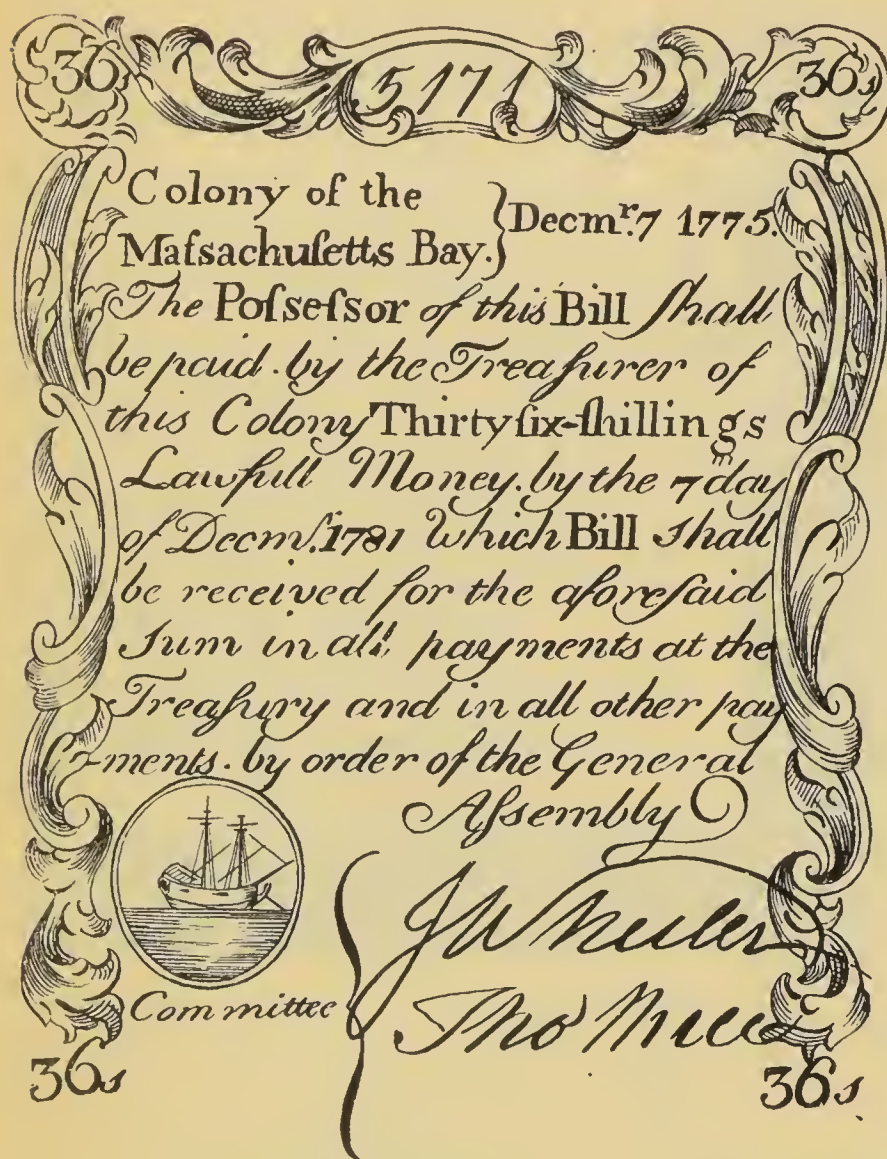 36 5171 36s
Colony of the
Maſsachuſetts Bay. } Decmʳ. 7 1775.
The Poſseſsor of this Bill ſhall
be paid. by the Treaſurer of
this Colony Thirty ſix-ſhillings
Lawfull Money. by the 7ᵗʰ day
of Decmʳ. 1781 Which Bill shall
be received for the aforeſaid
Sum in all payments at the
Treaſury and in all other pay
-ments. by order of the General
Aſsembly
J Wheeler
Committee
Tho
36s 36s